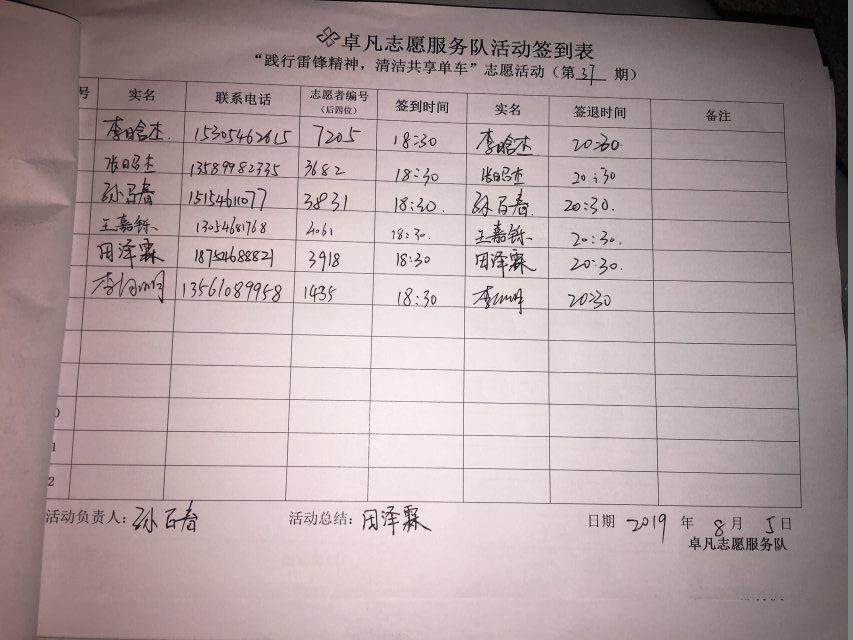 卓凡志愿服务队活动签到表
“践行雷锋精神，清洁共享单车”志愿活动（第 37 期）
号 实名 联系电话 志愿者编号（后四位） 签到时间 实名 签退时间 备注
李晗杰 15305462615 7205 18:30 李晗杰 20:30
张照杰 13589982335 3682 18:30 张照杰 20:30
孙百春 15154611077 3831 18:30 孙百春 20:30
王嘉铄 13054681768 4061 18:30 王嘉铄 20:30
田泽霖 18754688821 3918 18:30 田泽霖 20:30
13561089958 1435 18:30 20:30
0
1
2
活动负责人：孙百春 活动总结：田泽霖 日期 2019 年 8 月 5 日
卓凡志愿服务队